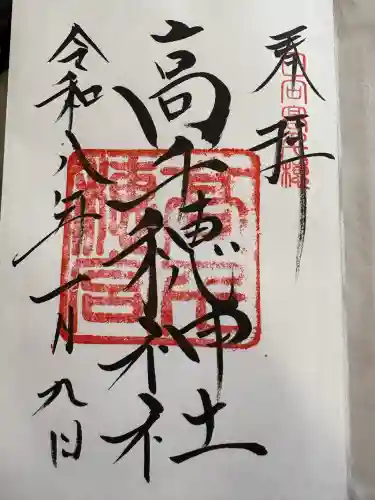 奉拝
高千穂神社
令和八年一月九日